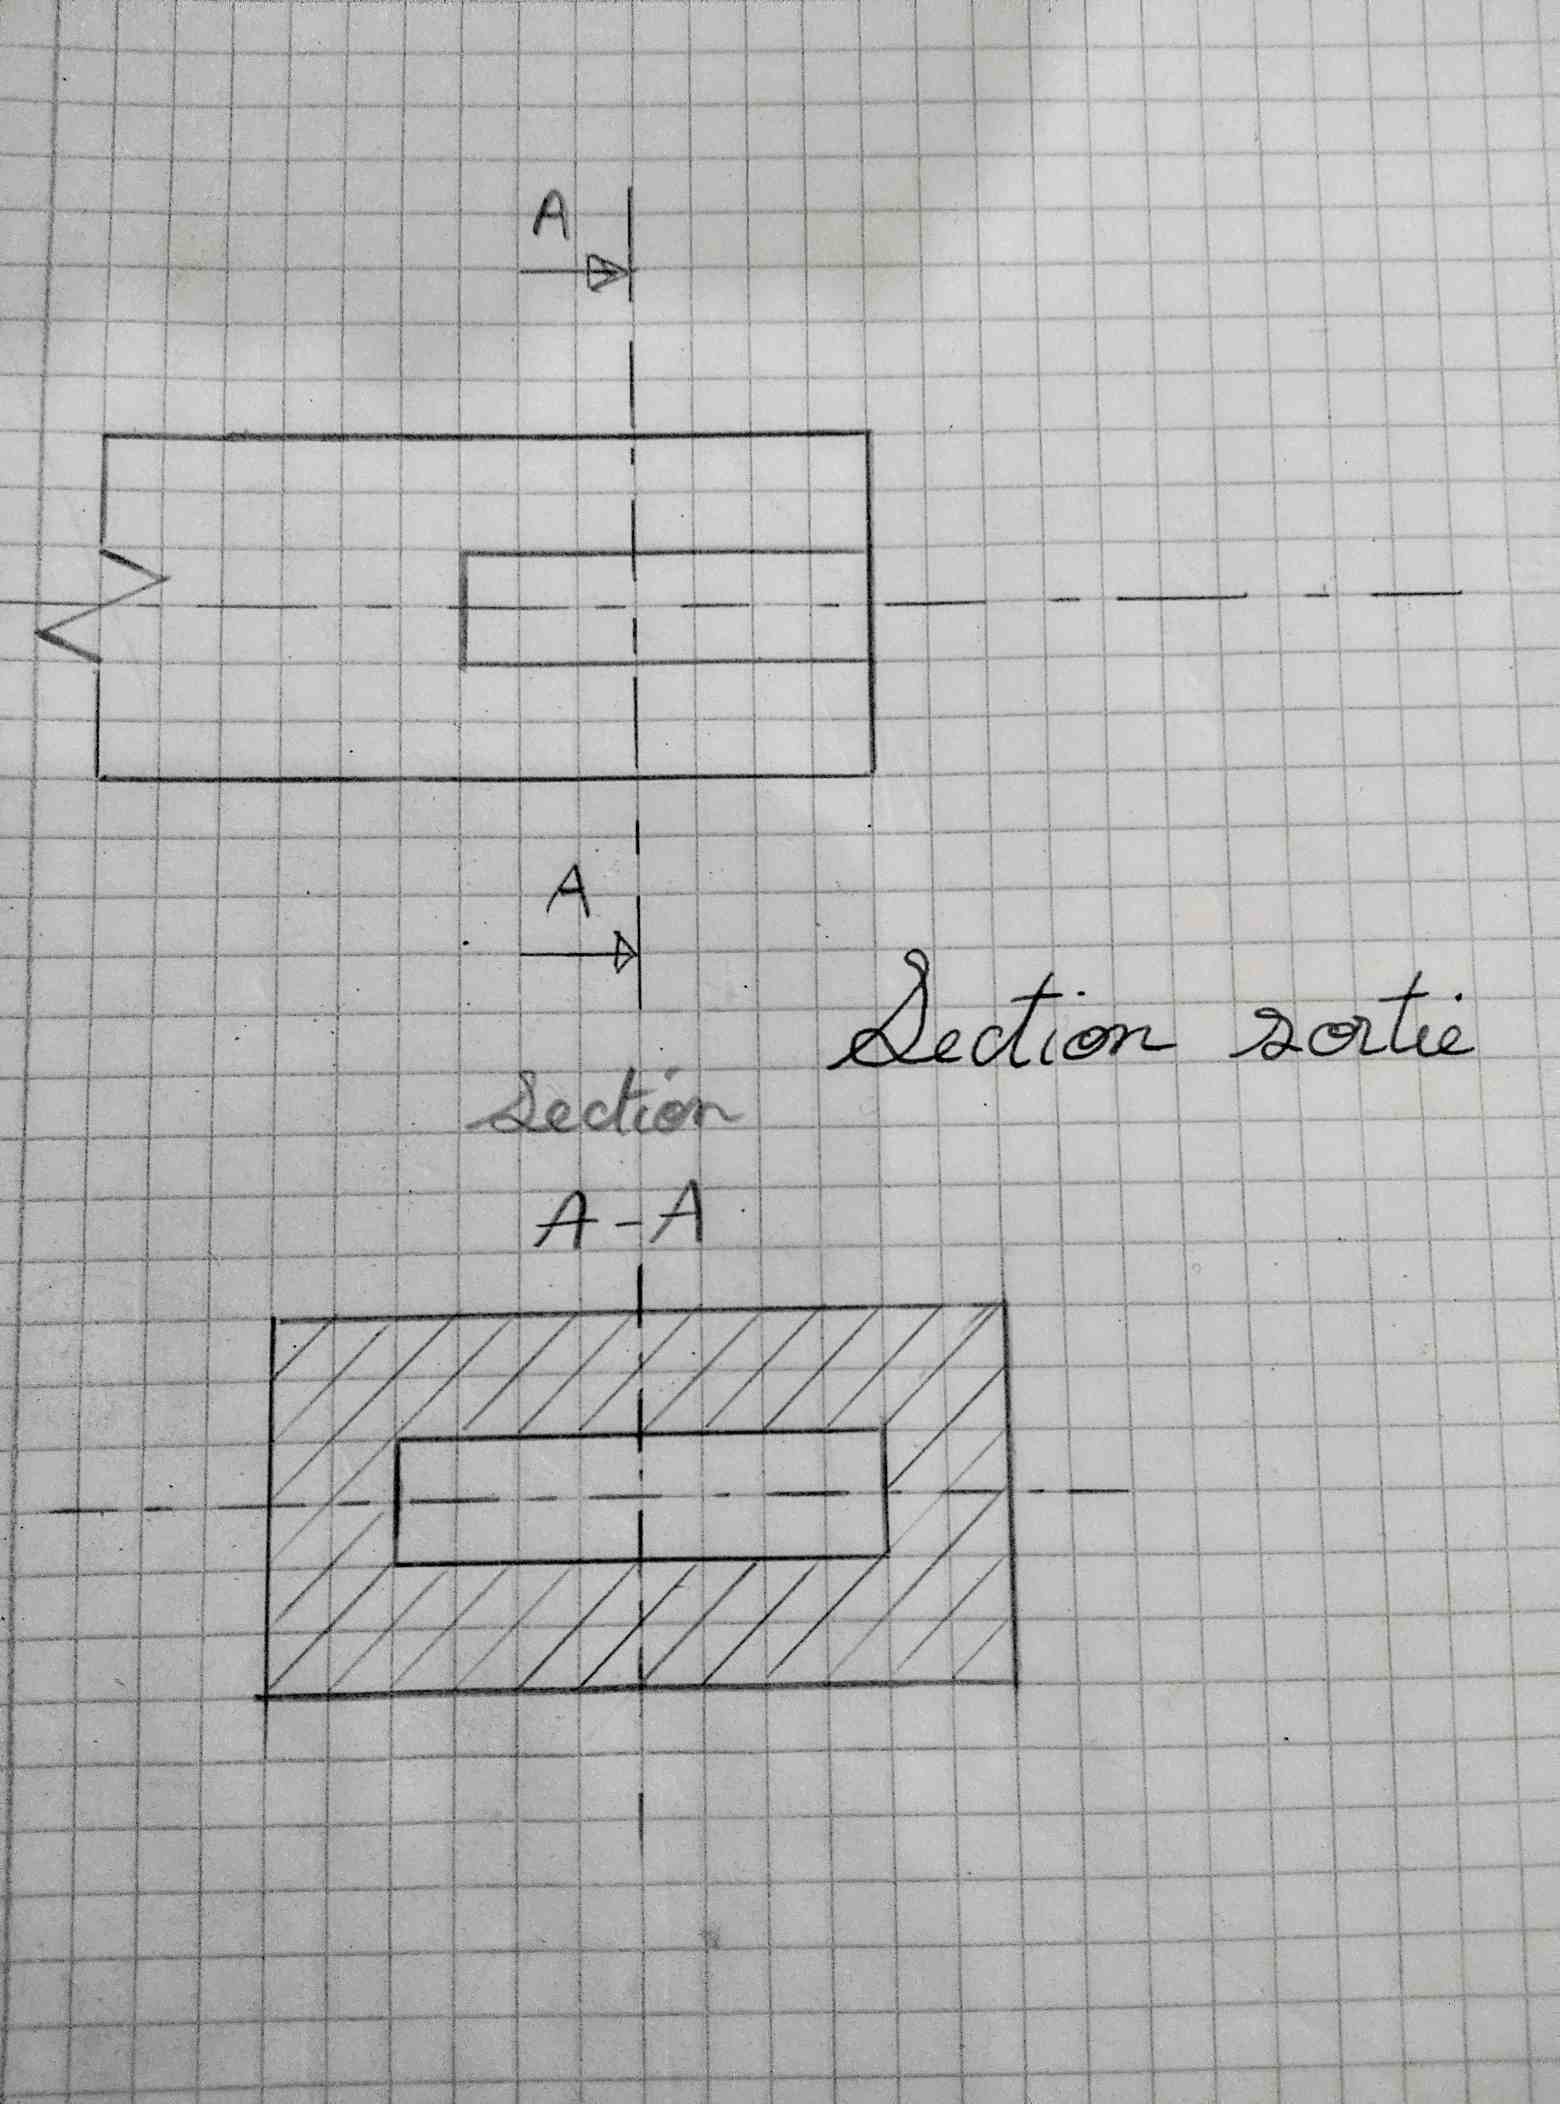 A
A
Section sortie
Section
A-A